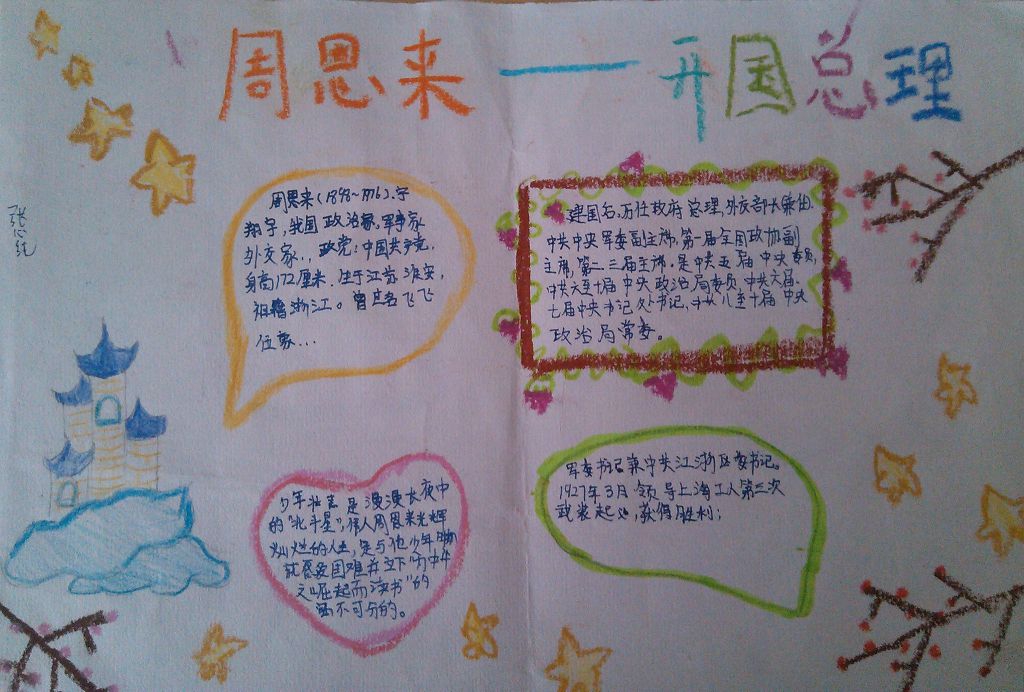 周恩来——开国总理
张心纯
周恩来(1898~1976),字
翔宇,我国政治家,军事家
外交家.,政党:中国共产党,
身高172厘米.生于江苏淮安,
祖籍浙江。曾言名飞飞
伍豪...
建国后,历任政府总理,外交部长兼任.
中共中央军委副主席,第一届全国政协副
主席,第二.三届主席,是中共五届中央委员,
中共六至十届中央政治局委员,中共六届.
七届中央书记处书记,中共八至十届中央
政治局常委。
少年壮志是漫漫长夜中
的"北斗星";伟人周恩来光辉
灿烂的人生,是与他少年时
就忧国难并立下"为中华
之崛起而读书"的
不可分的。
军委书记兼中共江浙区委书记。
1927年3月领导上海工人第三次
武装起义,获得胜利;